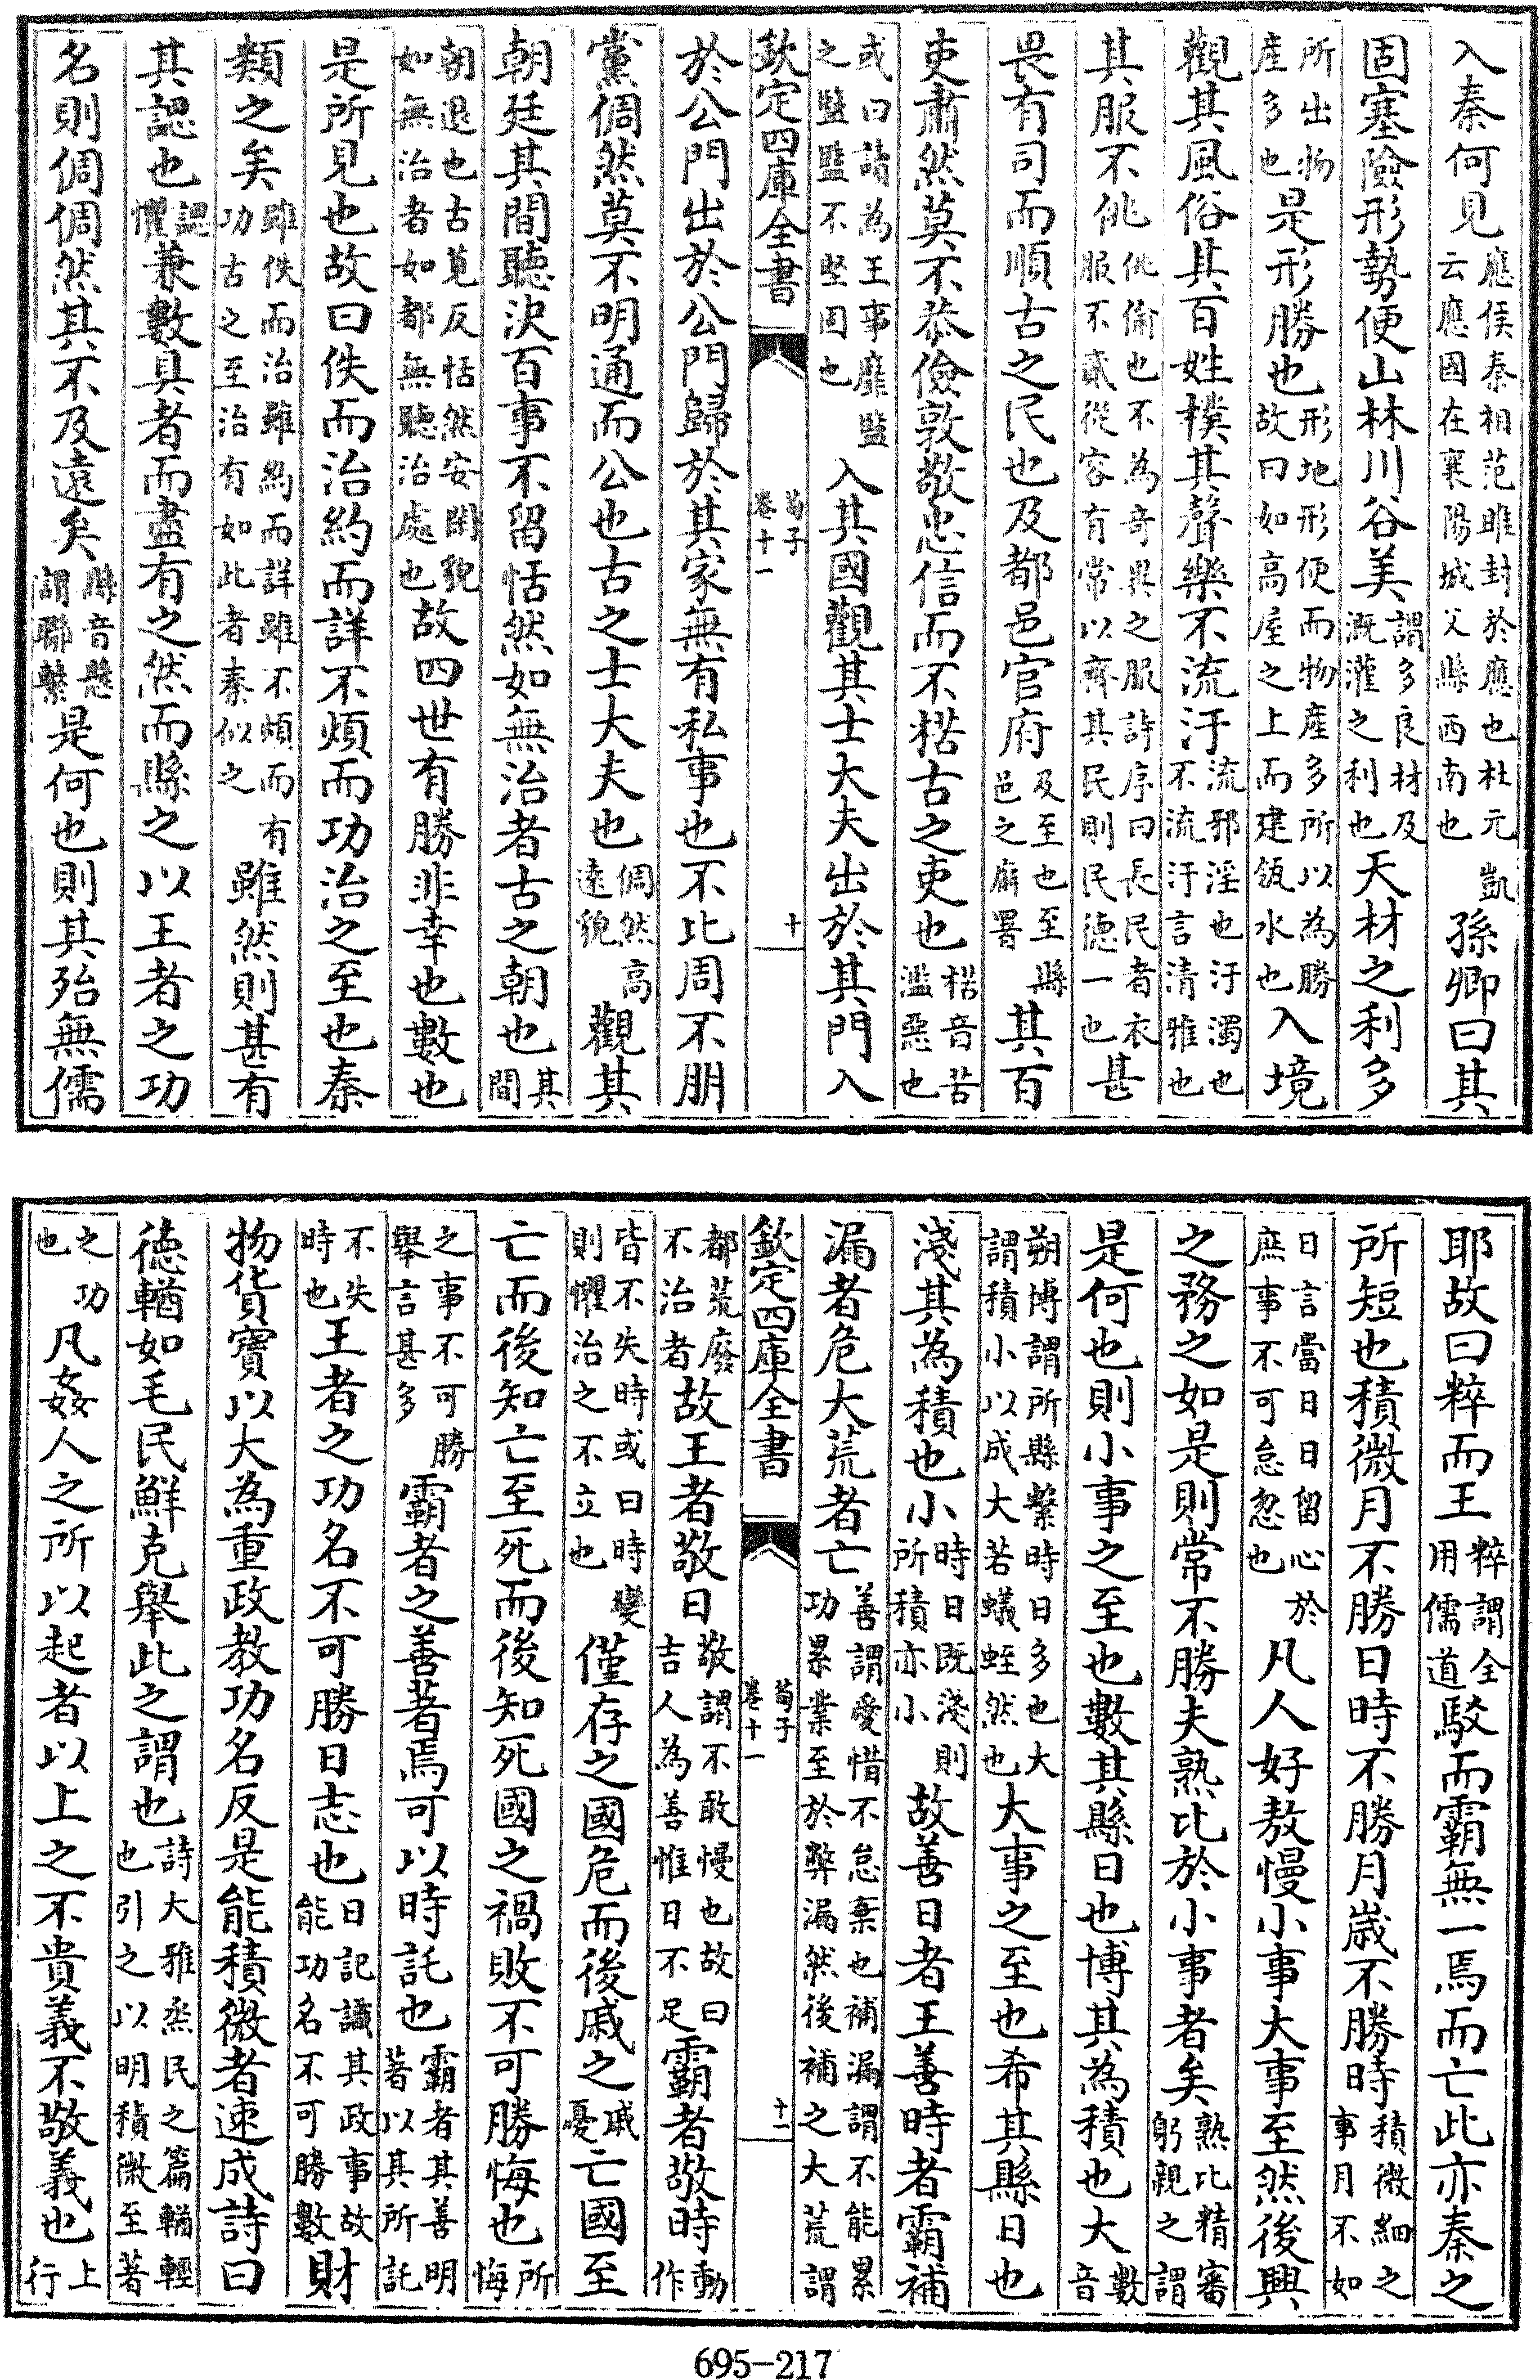 入秦何見應侯秦相范雎封於應也杜元凱云應國在襄陽城父縣西南也孫卿曰其
固塞險形勢便山林川谷美謂多良材及溉灌之利也天材之利多
所出物產多也是形勝也形地形便而物產多所以為勝故曰如高屋之上而建瓴水也入境
觀其風俗其百姓樸其聲樂不流汙流邪淫也汙濁也不流汙言清雅也
其服不佻佻偷也不為奇異之服詩序曰長民者衣服不貳從容有常以齊其民則民德一也甚
畏有司而順古之民也及都邑官府及至也至縣邑之廨署其百
吏肅然莫不恭儉敦敬忠信而不楛古之吏也楛音苦濫惡也
或曰讀為王事靡盬之盬盬不堅固也入其國觀其士大夫出於其門入
欽定四庫全書 荀子卷十一 十
於公門出於公門歸於其家無有私事也不比周不朋
黨倜然莫不明通而公也古之士大夫也倜然高遠貌觀其
朝廷其間聽決百事不留恬然如無治者古之朝也其間
朝退也古莧反恬然安閑貌如無治者如都無聽治處也故四世有勝非幸也數也
是所見也故曰佚而治約而詳不煩而功治之至也秦
類之矣雖佚而治雖約而詳雖不煩而有功古之至治有如此者秦似之雖然則甚有
其諰也諰懼兼數具者而盡有之然而縣之以王者之功
名則倜倜然其不及遠矣縣音懸謂聯繫是何也則其殆無儒
耶故曰粹而王粹謂全用儒道駁而霸無一焉而亡此亦秦之
所短也積微月不勝日時不勝月歲不勝時積微細之事月不如
日言當日日留心於庶事不可怠忽也凡人好敖慢小事大事至然後興
之務之如是則常不勝夫熟比於小事者矣熟比精審躬親之謂
是何也則小事之至也數其縣日也博其為積也大數音
朔博謂所縣繫時日多也大謂積小以成大若蟻蛭然也大事之至也希其縣日也
淺其為積也小時日既淺則所積亦小故善日者王善時者霸補
漏者危大荒者亡善謂愛惜不怠棄也補漏謂不能累功累業至於弊漏然後補之大荒謂
欽定四庫全書 荀子卷十一 十一
都荒廢不治者故王者敬日敬謂不敢慢也故曰吉人為善惟日不足霸者敬時動作
皆不失時或曰時變則懼治之不立也僅存之國危而後戚之戚憂亡國至
亡而後知亡至死而後知死國之禍敗不可勝悔也所悔
之事不可勝舉言甚多霸者之善著焉可以時託也霸者其善明著以其所託
不失時也王者之功名不可勝日志也日記識其政事故能功名不可勝數財
物貨寶以大為重政教功名反是能積微者速成詩曰
德輶如毛民鮮克舉此之謂也詩大雅烝民之篇輶輕也引之以明積微至著
之功也凡姦人之所以起者以上之不貴義不敬義也上行
695-217